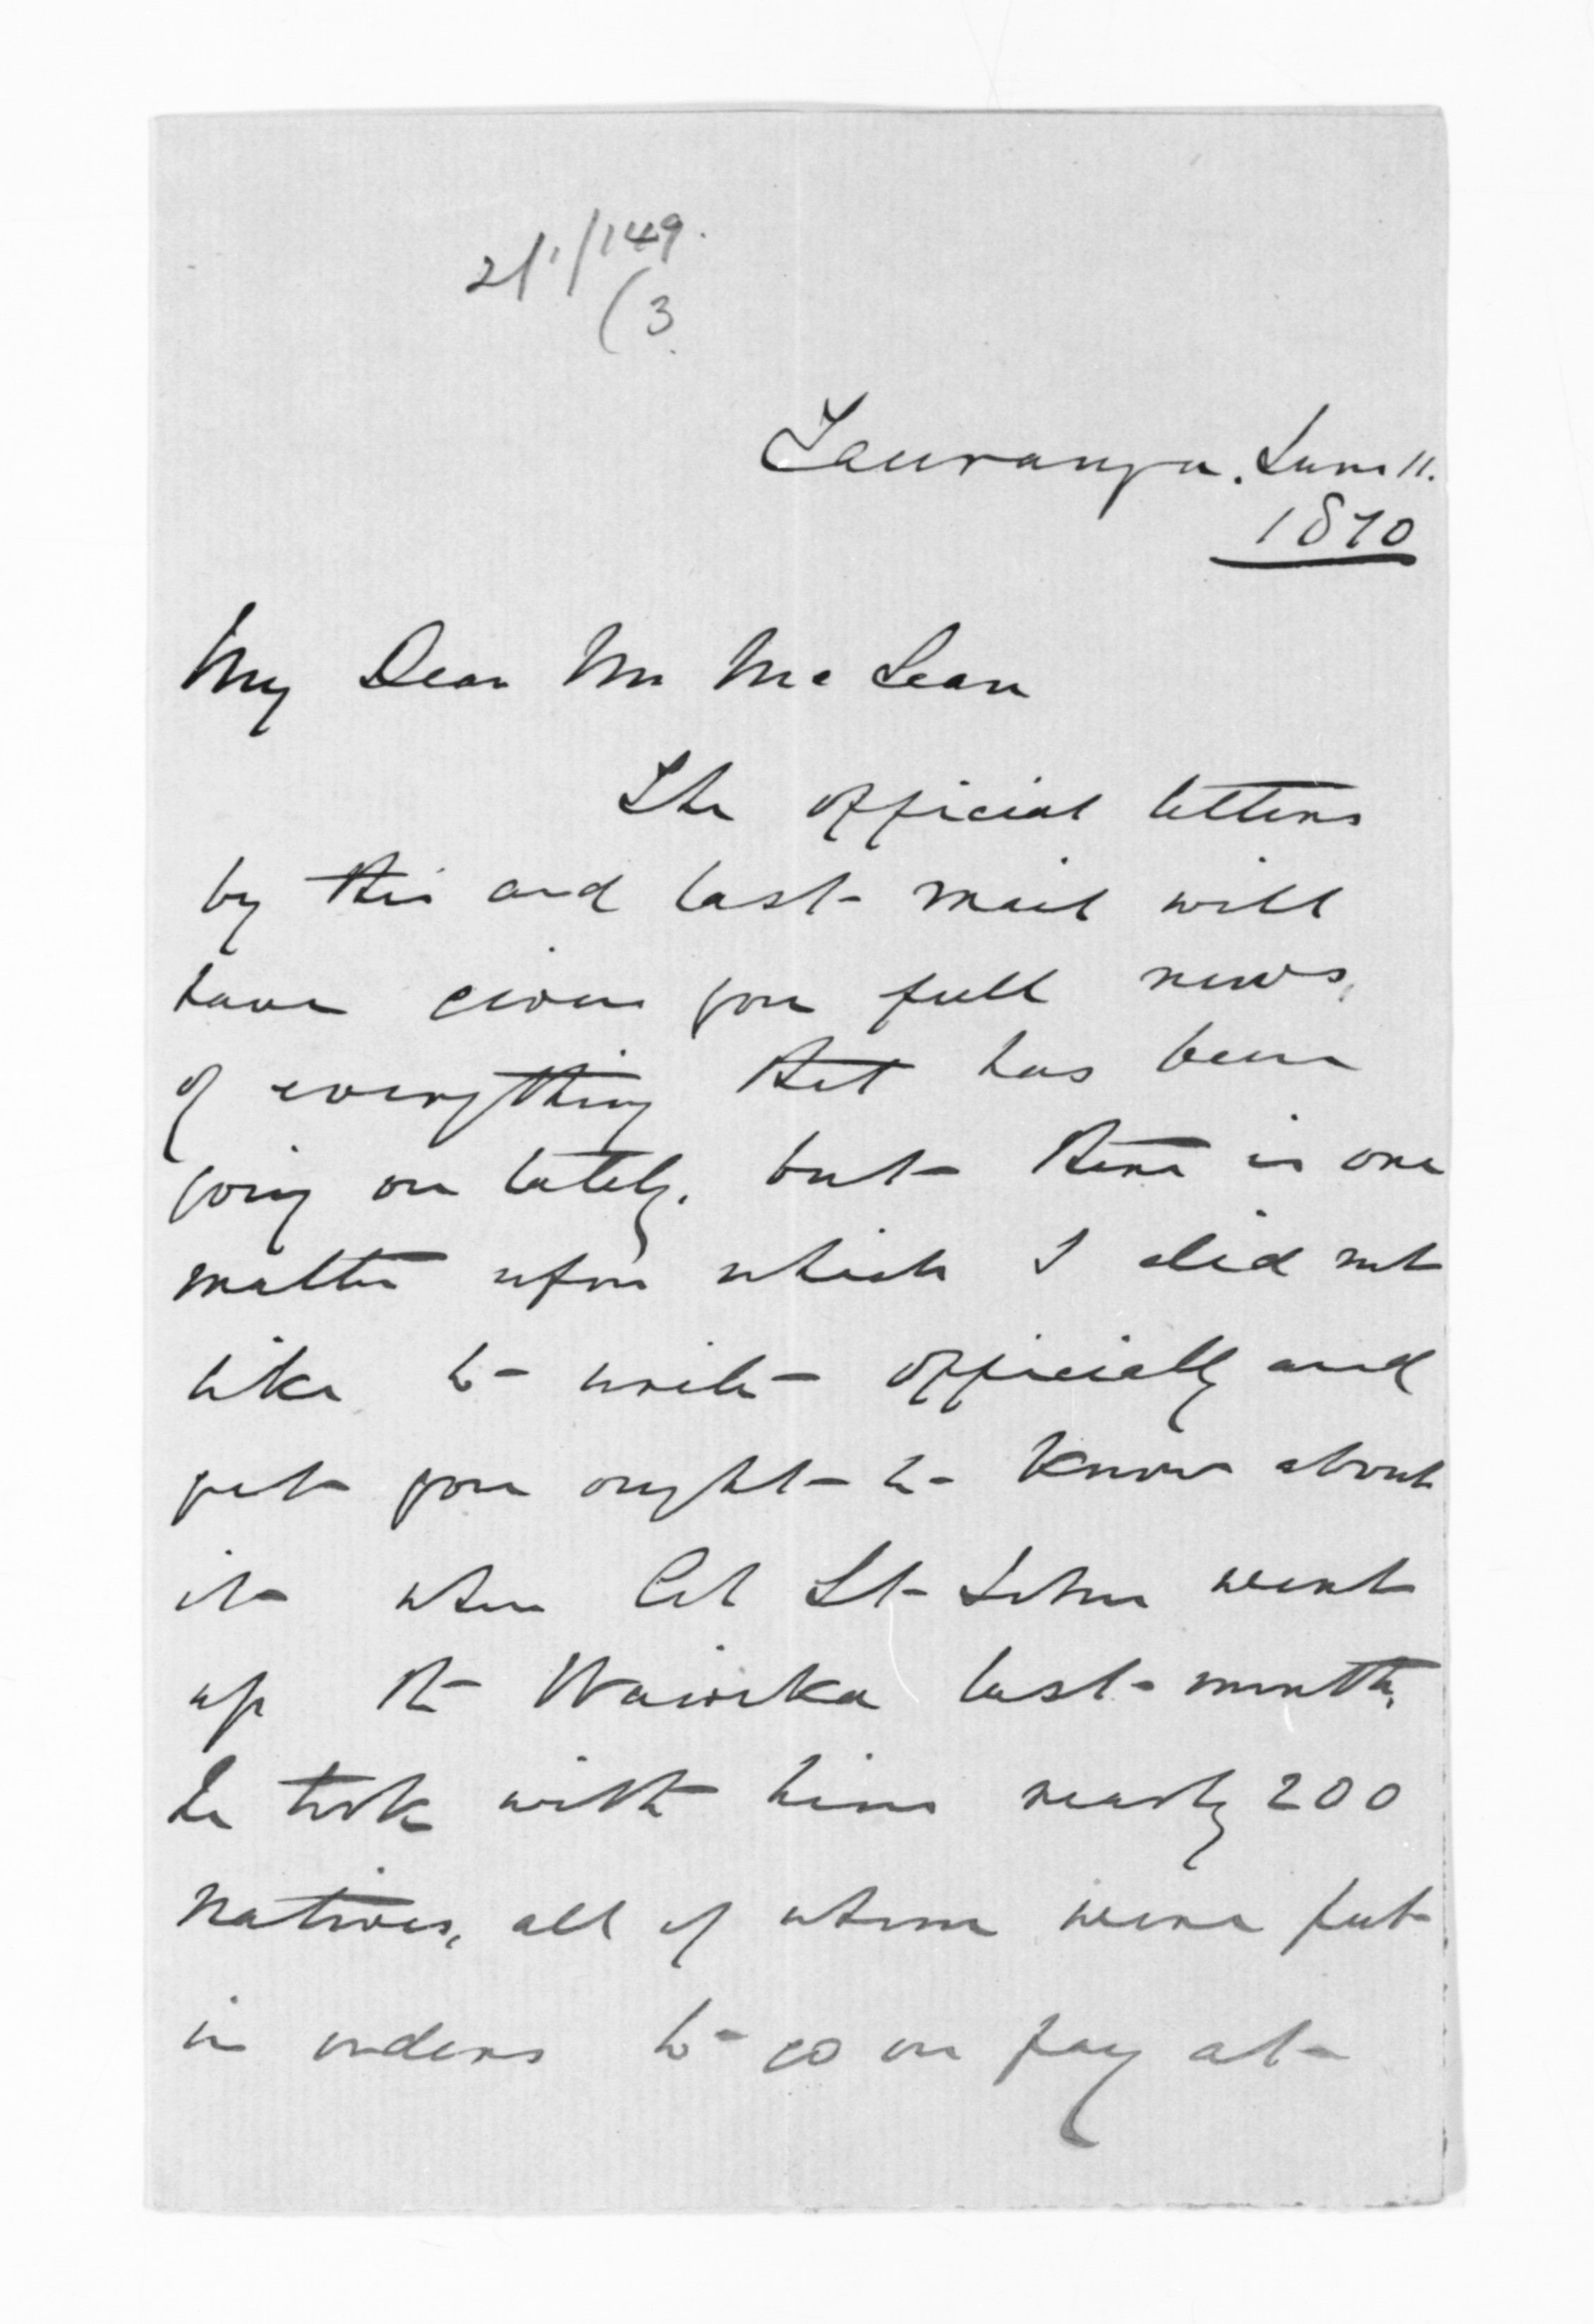 2/1/149.
(3.
Tauranga. June 11.
1870
My Dear Mr McLean
The official letters
by this and last mail will
have given you full news,
of everything that has been
going on lately. but there is one
matter upon which I did not
like to write officially and
yet you ought to know about
it when Col St John went
up the Waioeka last month,
he took with him nearly 200
Natives, all of whom were put
in orders to go on pay at